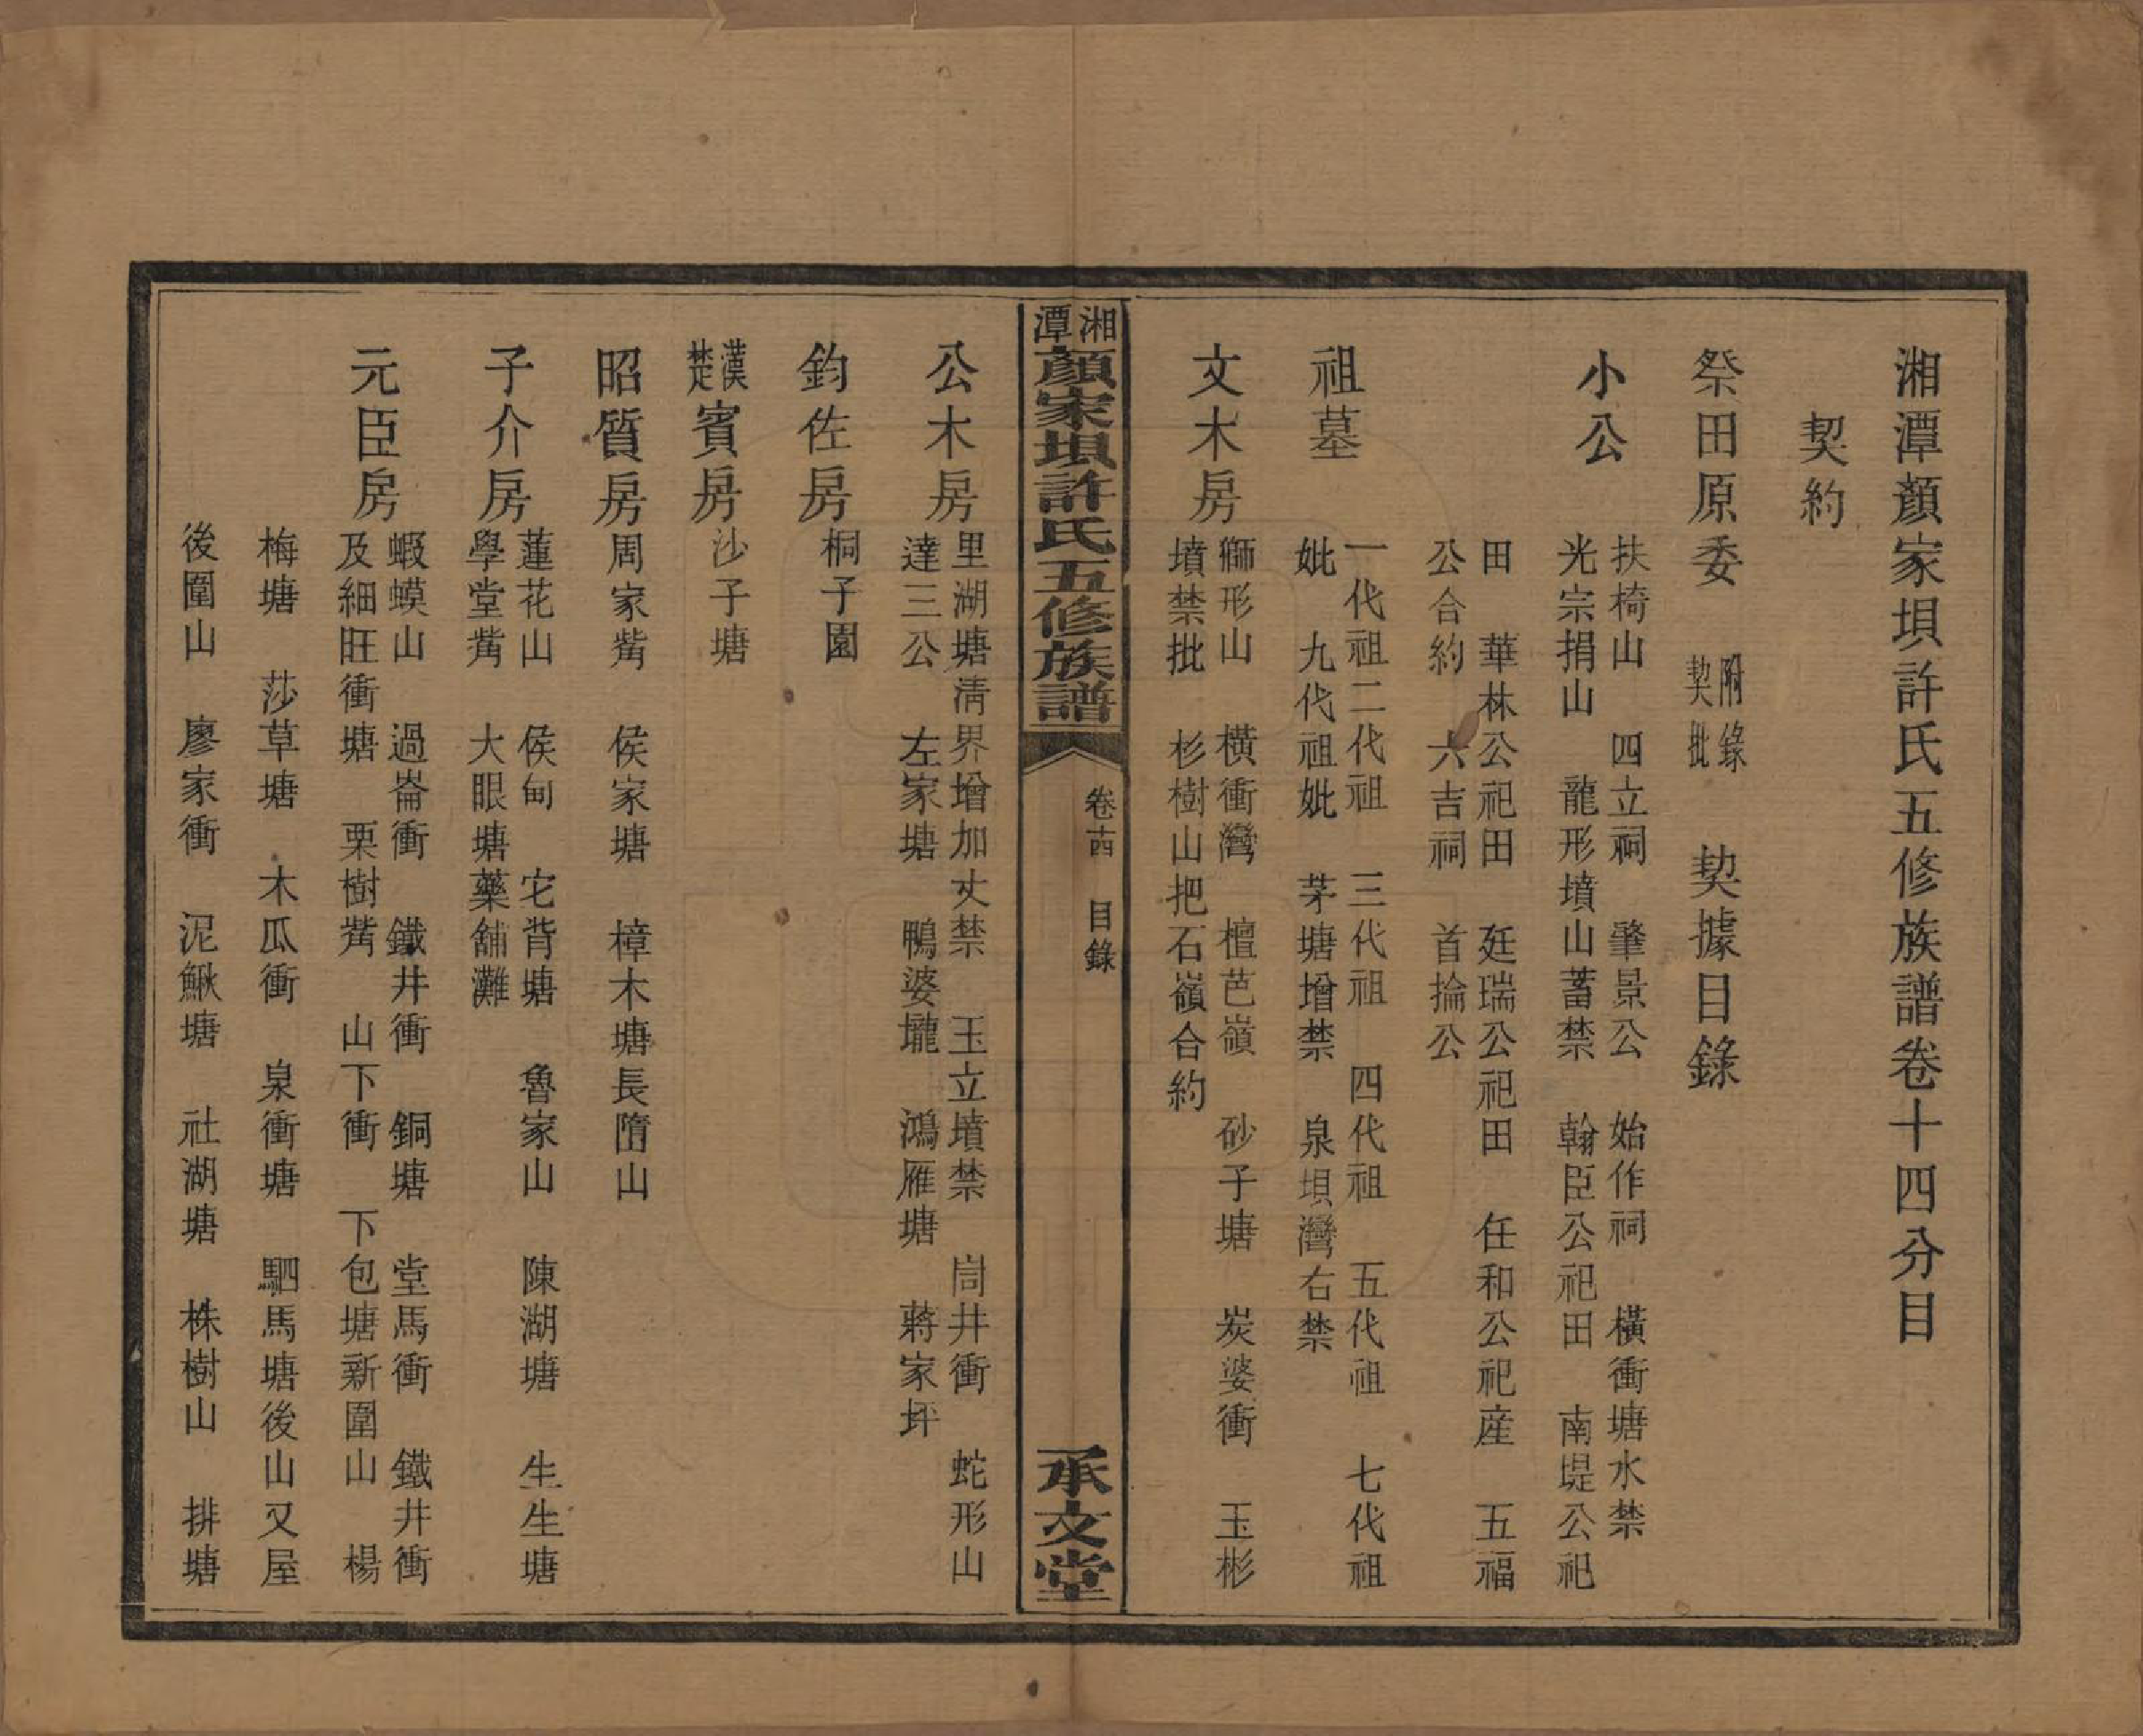 湘潭顏家垻許氏五修族譜卷十四分目
契約
祭田原委 附錄契批 契據目錄
小公
扶椅山 四立祠 肇景公 始作祠 橫衝塘水禁
光宗捐山 龍形墳山蓄禁 翰臣公祀田 南堤公祀
田 華林公祀田 廷瑞公祀田 任和公祀産 五福
公合約 六吉祠 首掄公
祖墓
一代祖二代祖 三代祖 四代祖 五代祖 七代祖
妣 九代祖妣 茅塘增禁 泉垻灣右禁
文木房
獅形山 橫衝灣 檀芭嶺 砂子塘 炭婆衝 玉彬
墳禁批 杉樹山把石嶺合約
湘潭顏家垻許氏五修族譜 卷十四 目錄 承文堂
公木房
里湖塘清界增加丈禁 玉立墳禁 峝井衝 蛇形山
達三公 左家塘 鴨婆壠 鴻雁塘 蔣家坪
鈞佐房 桐子園
漢楚賓房 沙子塘
昭質房 周家觜 侯家塘 樟木塘長隋山
子介房
蓮花山 侯甸 宅背塘 魯家山 陳湖塘 生生塘
學堂觜 大眼塘藥舖灘
元臣房
蝦蟆山 過崙衝 鐵井衝 銅塘 堂馬衝 鐵井衝
及細旺衝塘 栗樹觜 山下衝 下包塘新圍山 楊
梅塘 莎草塘 木瓜衝 泉衝塘 駟馬塘後山又屋
後圍山 廖家衝 泥鰍塘 社湖塘 株樹山 排塘